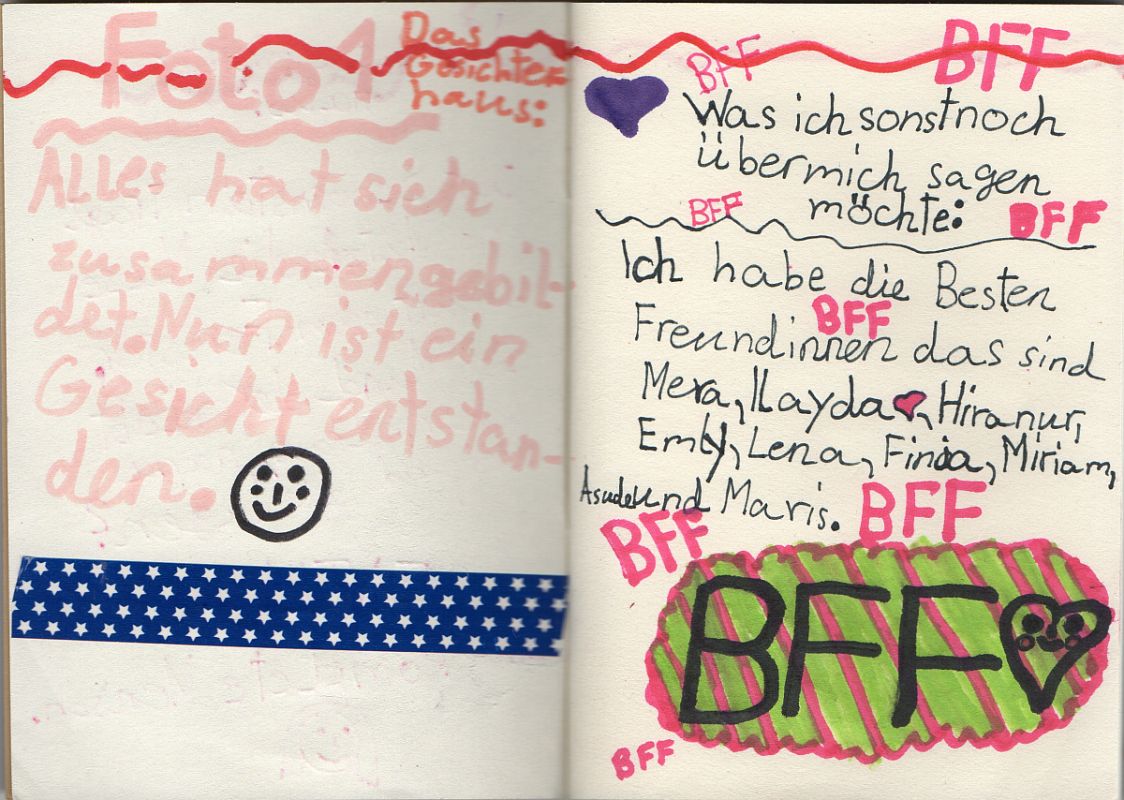 Foto 1
Das
Gesichter
haus:
Alles hat sich
zusammengebil-
det. Nun ist ein
Gesicht entstan-
den.
BFF
BFF
Was ich sonstnoch
übermich sagen
möchte:
BFF
BFF
Ich habe die Besten
BFF
Freundinnen das sind
Mera, ILayda, Hiranur,
Emly, Lena, Finia, Miriam,
Asude und Maris.
BFF
BFF
BFF
BFF